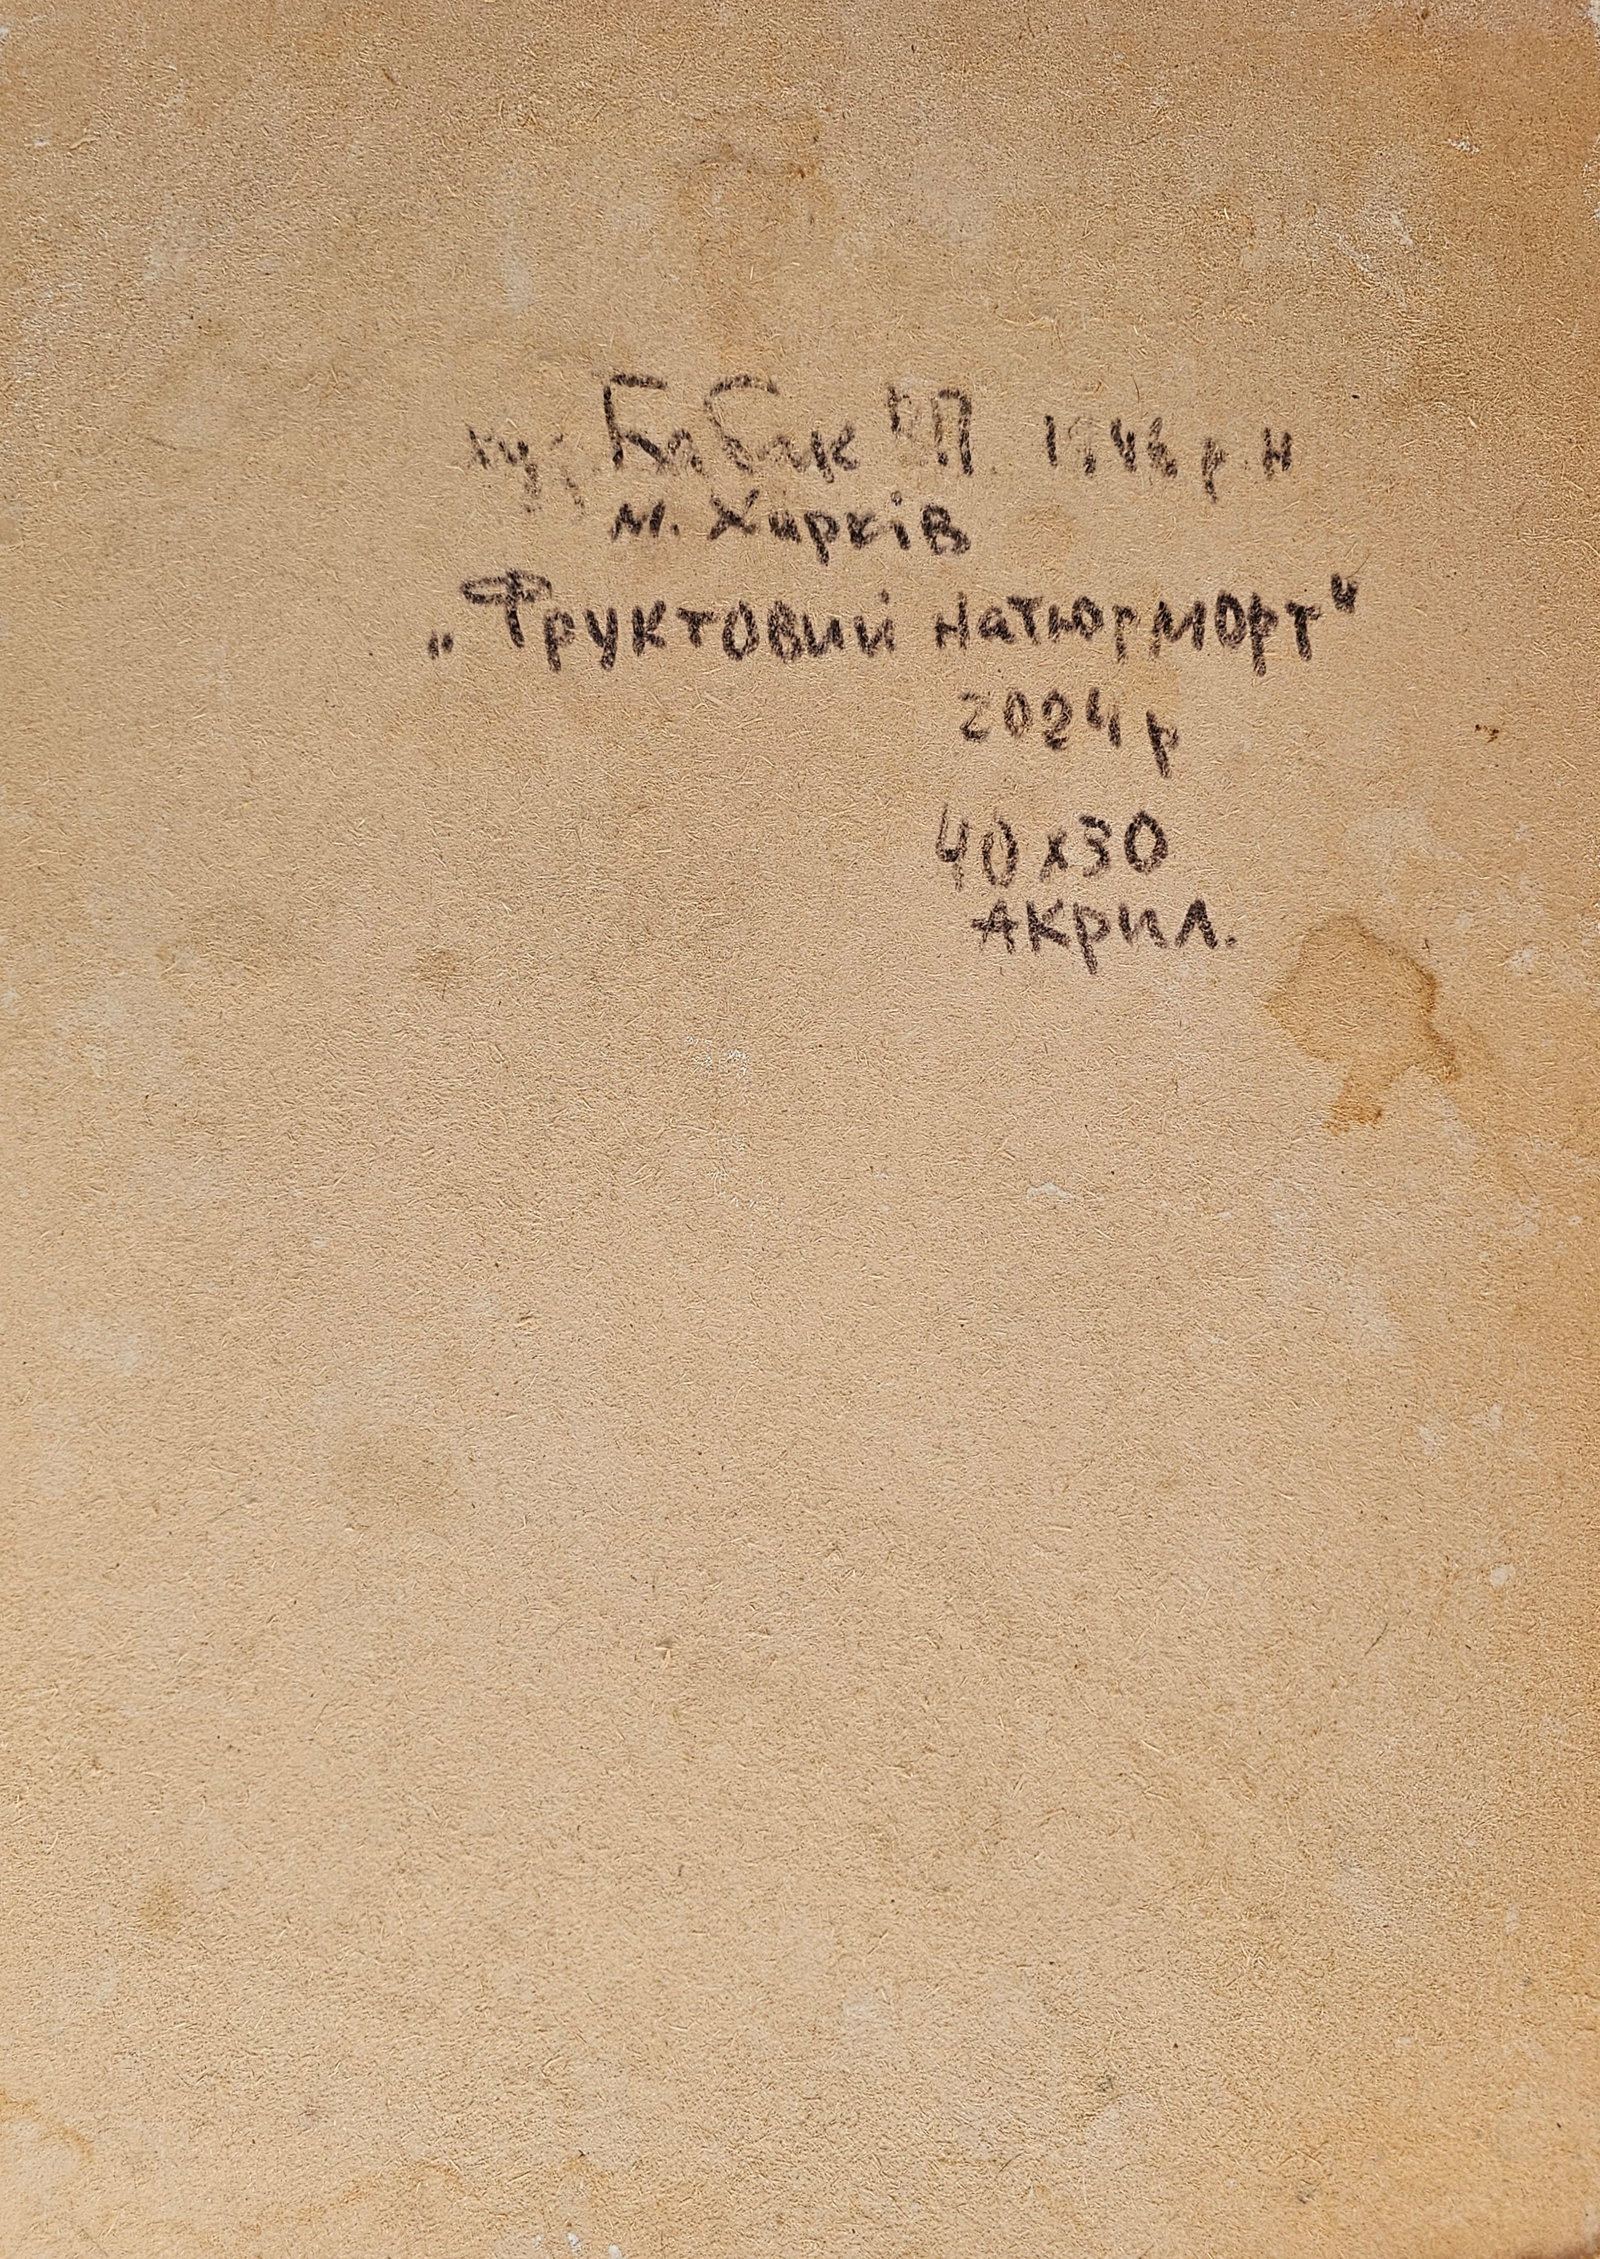 худ. Бабак В.П. 1946 р.н
м. Харків
„Фруктовий натюрморт“
2024 р
40х30
Акрил.